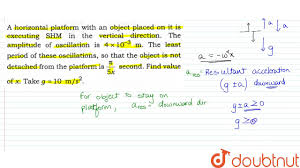 A horizontal platform with an object placed on it is
executing SHM in the vertical direction. The
amplitude of oscillation is 4×10⁻³ m. The least
period of these oscillations, so that the object is
not detached from the platform is π/5x second. Find value
of x Take g = 10 m/s².
↑a ↓a
↓g
a = -ω²x
a_res = Resultant acceleration
(g ± a) downward
For object to stay on
platform, a_res = downward dir
g ± a ≥ 0
g ≥
doubtnut